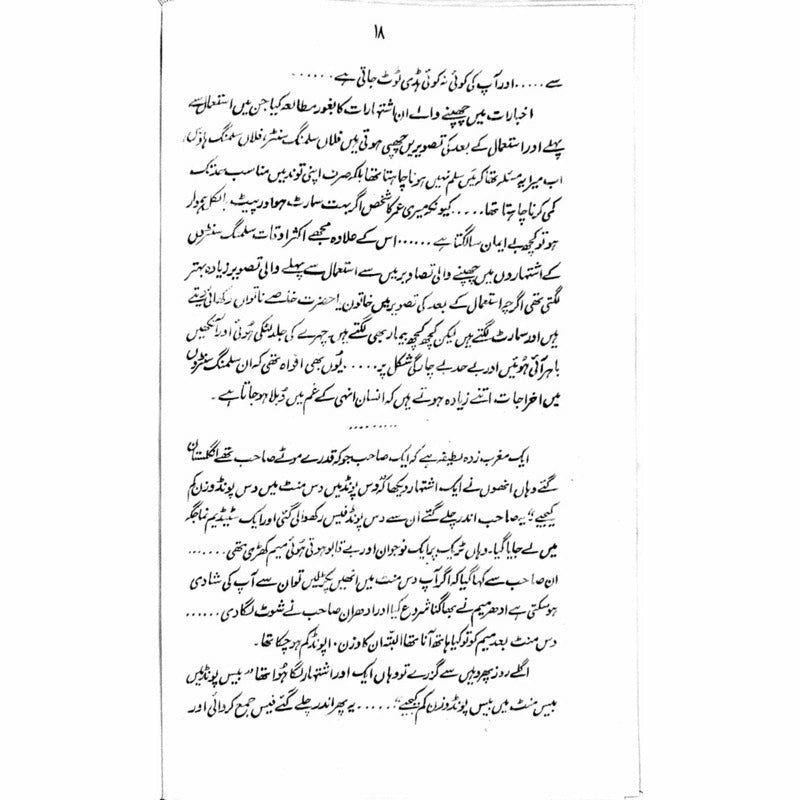 ۱۸
سے ..... اور آپ کی کوئی نہ کوئی ہڈی ٹوٹ جاتی ہے ......
اخبارات میں چھپنے والے ان اشتہارات کا بغور مطالعہ کیا جن میں استعمال سے
پہلے اور استعمال کے بعد کی تصویریں چھپی ہوتی ہیں فلاں سلمنگ سنٹر، فلاں سلمنگ ہاؤس،
اب میرا یہ مسئلہ تھا کہ میں سلم نہیں ہونا چاہتا تھا بلکہ صرف اپنی توند میں مناسب حد تک
کمی کرنا چاہتا تھا ..... کیونکہ میری عمر کا شخص اگر بہت سمارٹ ہو اور پیٹ بالکل ہموار
ہو تو کچھ بے ایمان سا لگتا ہے ...... اس کے علاوہ مجھے اکثر اوقات سلمنگ سنٹروں
کے اشتہاروں میں چھپنے والی تصاویر میں سے استعمال سے پہلے والی تصویر زیادہ بہتر
لگتی تھی اگرچہ استعمال کے بعد کی تصویر میں خاتون یا حضرت خاصے ناتواں دکھائی دیتے
ہیں اور سمارٹ لگتے ہیں لیکن کچھ کچھ بیمار بھی لگتے ہیں۔ چہرے کی جلد لٹکی ہوئی اور آنکھیں
باہر آئی ہوئیں اور بے حد بے چارگی شکل پر ..... یوں بھی افواہ تھی کہ ان سلمنگ سنٹروں
میں اخراجات اتنے زیادہ ہوتے ہیں کہ انسان انہی کے غم میں دُبلا ہو جاتا ہے۔
.........
ایک مغرب زدہ لطیفہ ہے کہ ایک صاحب جو کہ قدرے موٹے صاحب تھے انگلستان
گئے وہاں انھوں نے ایک اشتہار دیکھا کہ "دس پونڈ میں دس منٹ میں دس پونڈ وزن کم
کیجیے" یہ صاحب اندر چلے گئے ان سے دس پونڈ فیس رکھوالی گئی اور ایک سٹیڈیم نما جگہ
میں لے جایا گیا۔ وہاں ٹریک پر ایک نوجوان اور بے قابو ہوتی ہوئی میم کھڑی تھی ......
ان صاحب سے کہا گیا کہ اگر آپ دس منٹ میں انھیں پکڑ لیں تو ان سے آپ کی شادی
ہو سکتی ہے ادھر میم نے بھاگنا شروع کیا اور ادھر ان صاحب نے شوٹ لگا دی ......
دس منٹ بعد میم کو تو کیا ہاتھ آنا تھا البتہ ان کا وزن ۱۰ پونڈ کم ہو چکا تھا۔
اگلے روز پھر وہیں سے گزرے تو وہاں ایک اور اشتہار لگا ہوا تھا "بیس پونڈ میں
بیس منٹ میں بیس پونڈ وزن کم کیجیے" ..... یہ پھر اندر چلے گئے فیس جمع کروائی اور